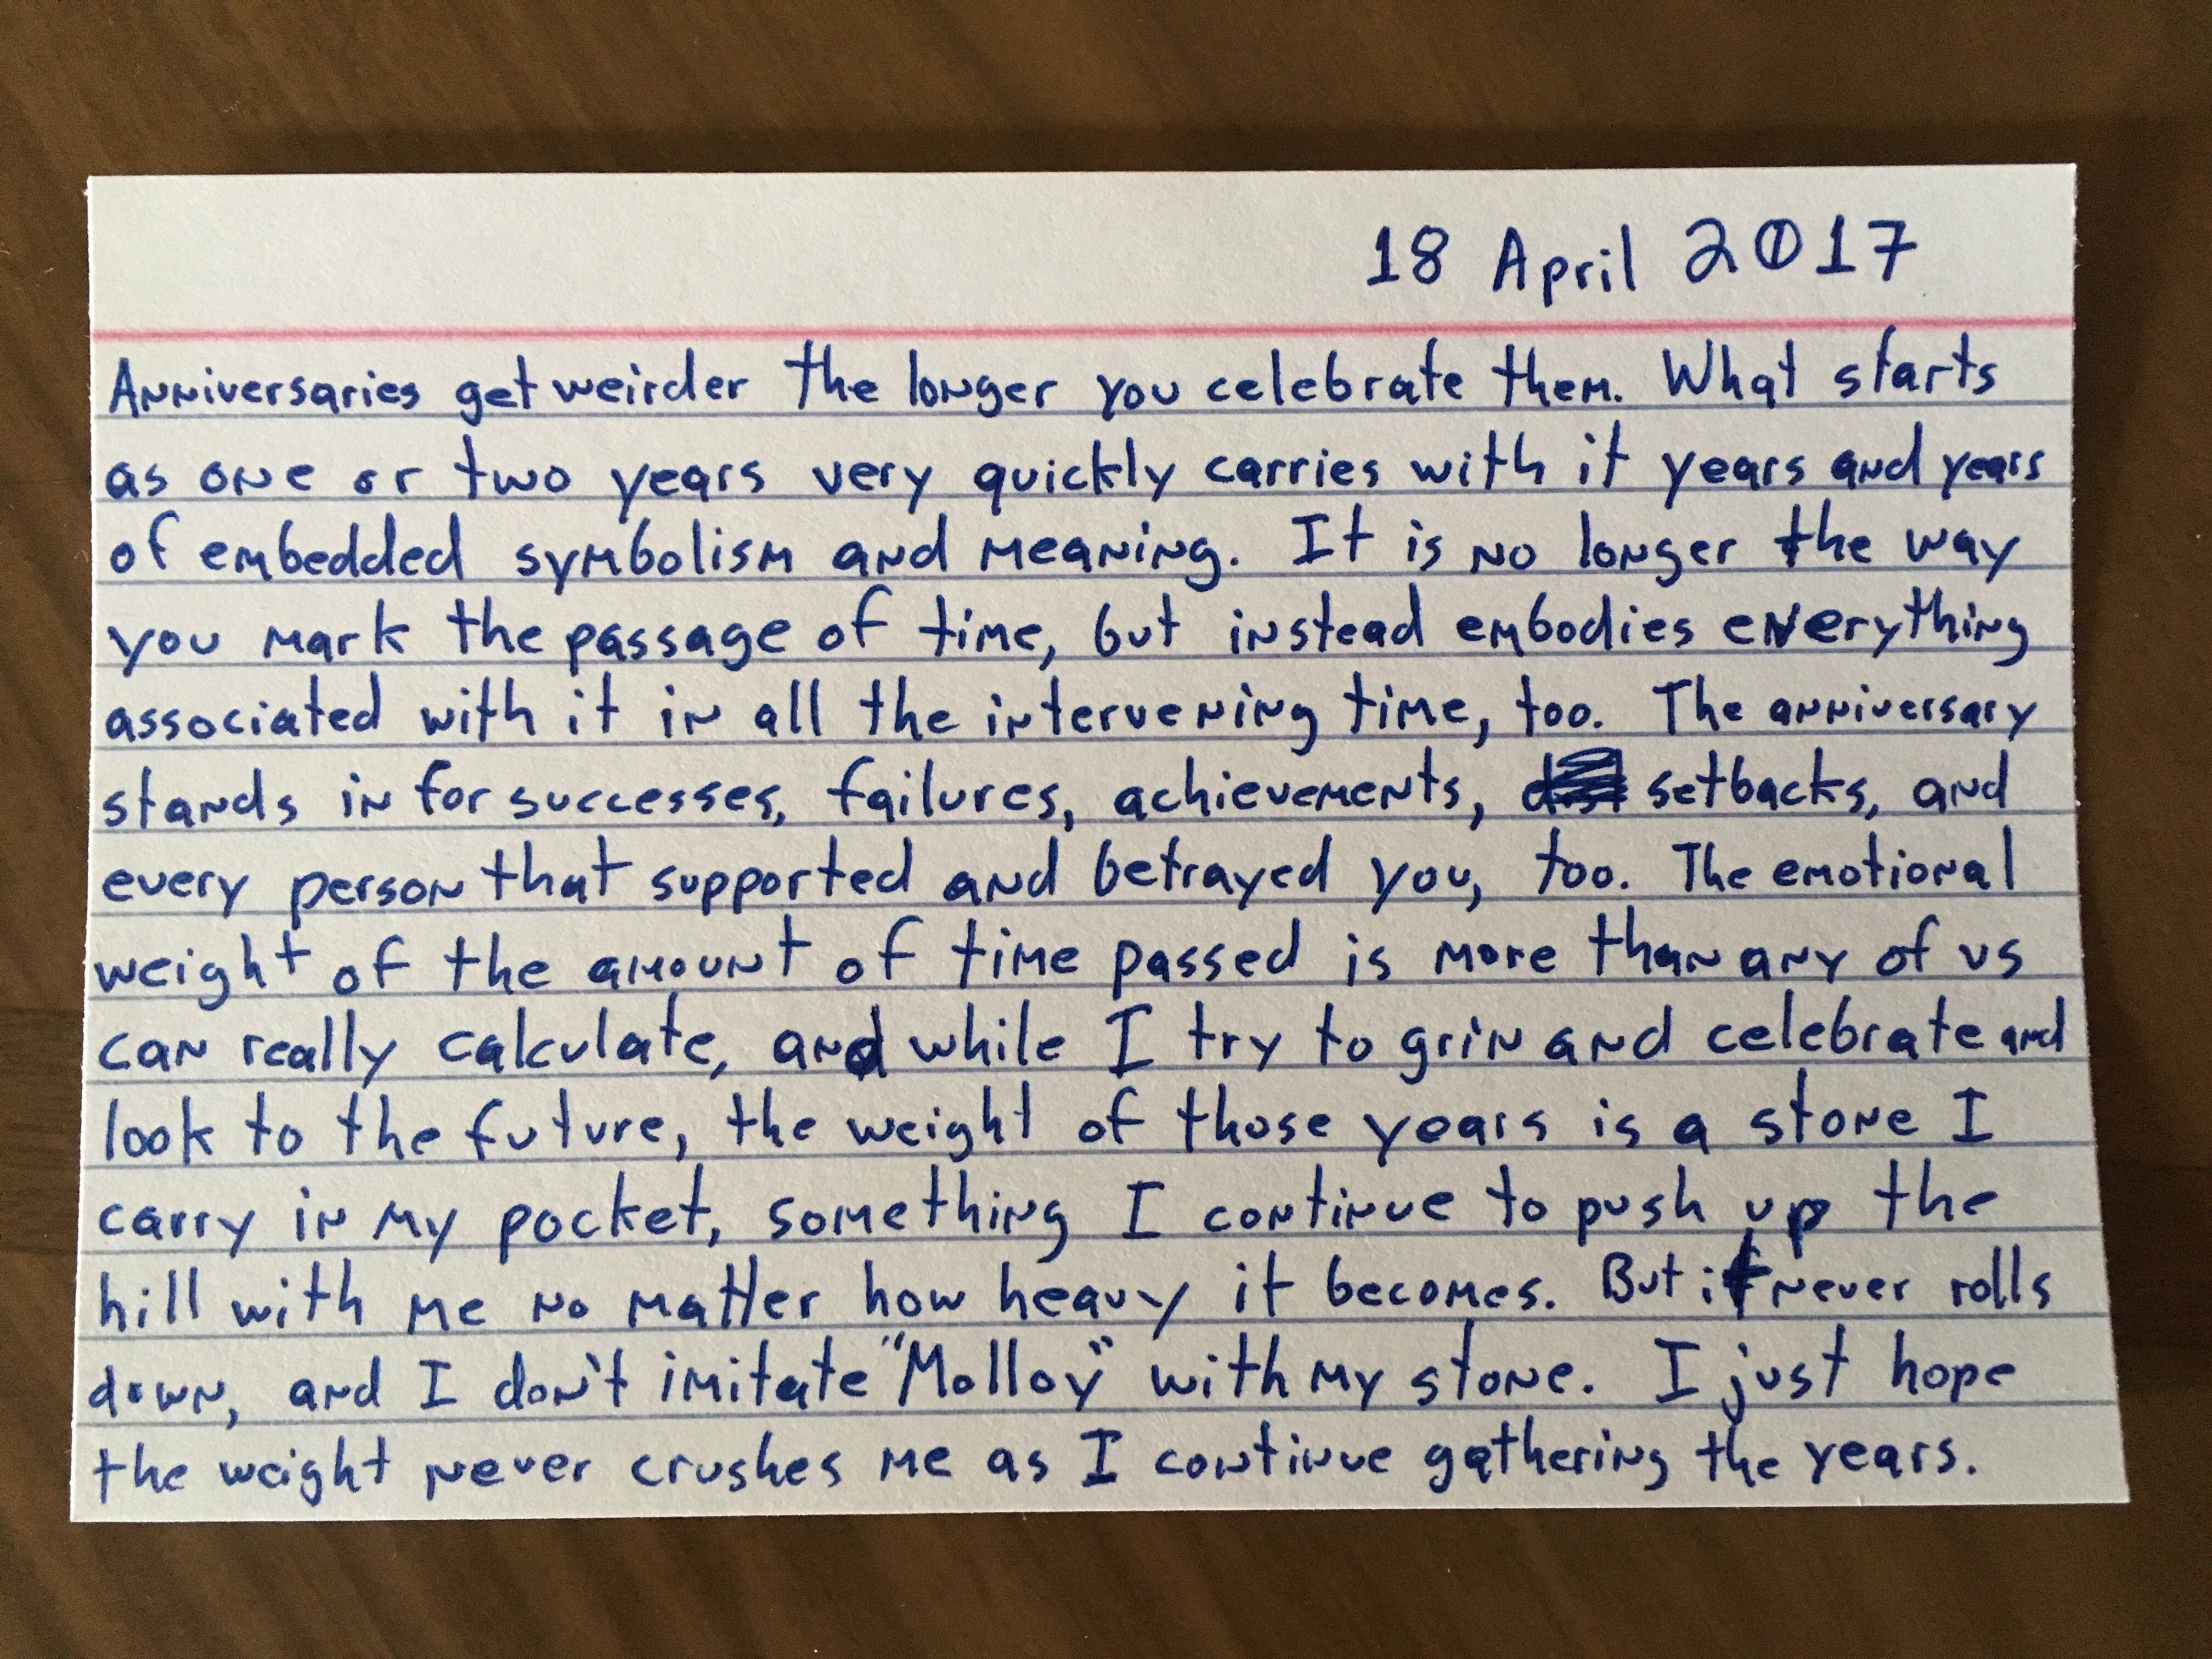 18 April 2017
Anniversaries get weirder the longer you celebrate them. What starts
as one or two years very quickly carries with it years and years
of embedded symbolism and meaning. It is no longer the way
you mark the passage of time, but instead embodies everything
associated with it in all the intervening time, too. The anniversary
stands in for successes, failures, achievements, setbacks, and
every person that supported and betrayed you, too. The emotional
weight of the amount of time passed is more than any of us
can really calculate, and while I try to grin and celebrate and
look to the future, the weight of those years is a stone I
carry in my pocket, something I continue to push up the
hill with me no matter how heavy it becomes. But it never rolls
down, and I don't imitate "Molloy" with my stone. I just hope
the weight never crushes me as I continue gathering the years.